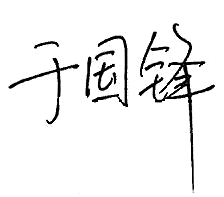 于国锋